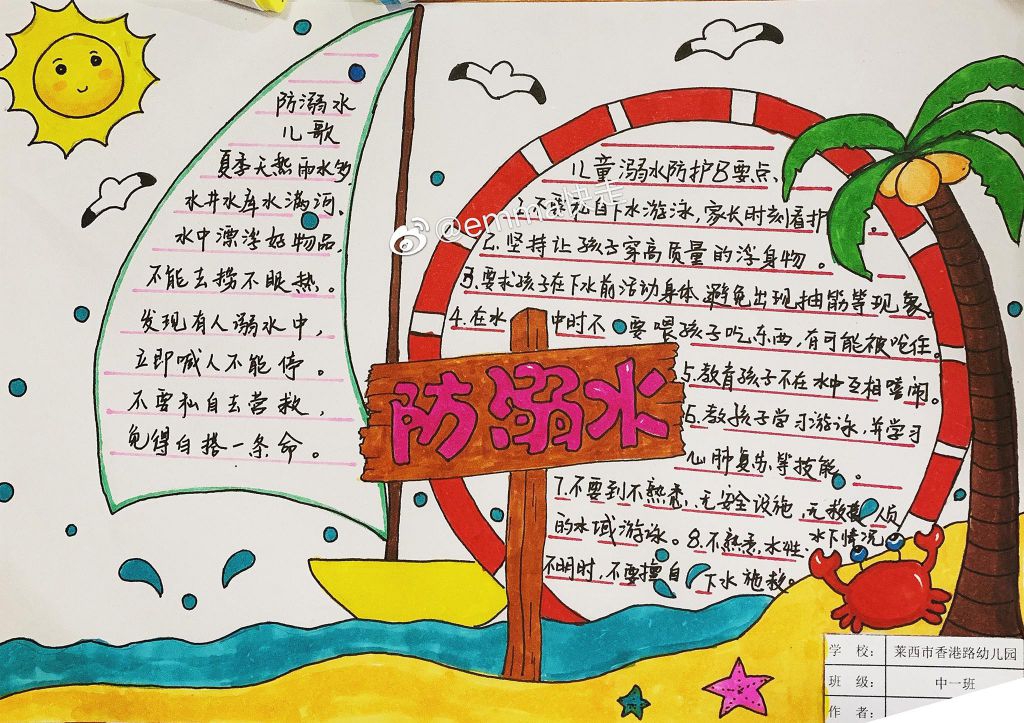 防溺水
儿歌
夏季天热雨水多,
水井水库水满河、
水中漂浮好物品,
不能去捞不眼热。
发现有人溺水中,
立即喊人不能停。
不要私自去营救,
免得白搭一条命。
@emme快毛
儿童溺水防护8要点、
自下水游泳,家长时刻看护。
2.坚持让孩子穿高质量的浮身物。
3.要求孩子在下水前活动身体、避免出现抽筋等现象。
4.在水中时不要喂孩子吃东西,有可能被呛住。
5.教育孩子不在水中互相嘻闹。
6.教孩子学习游泳,并学习
心肺复苏等技能。
7.不要到不熟悉、无安全设施、无救援人员
的水域游泳。8.不熟悉水性、水下情况
不明时,不要擅自下水施救。
防溺水
学 校: 莱西市香港路幼儿园
班 级: 中一班
作 者: